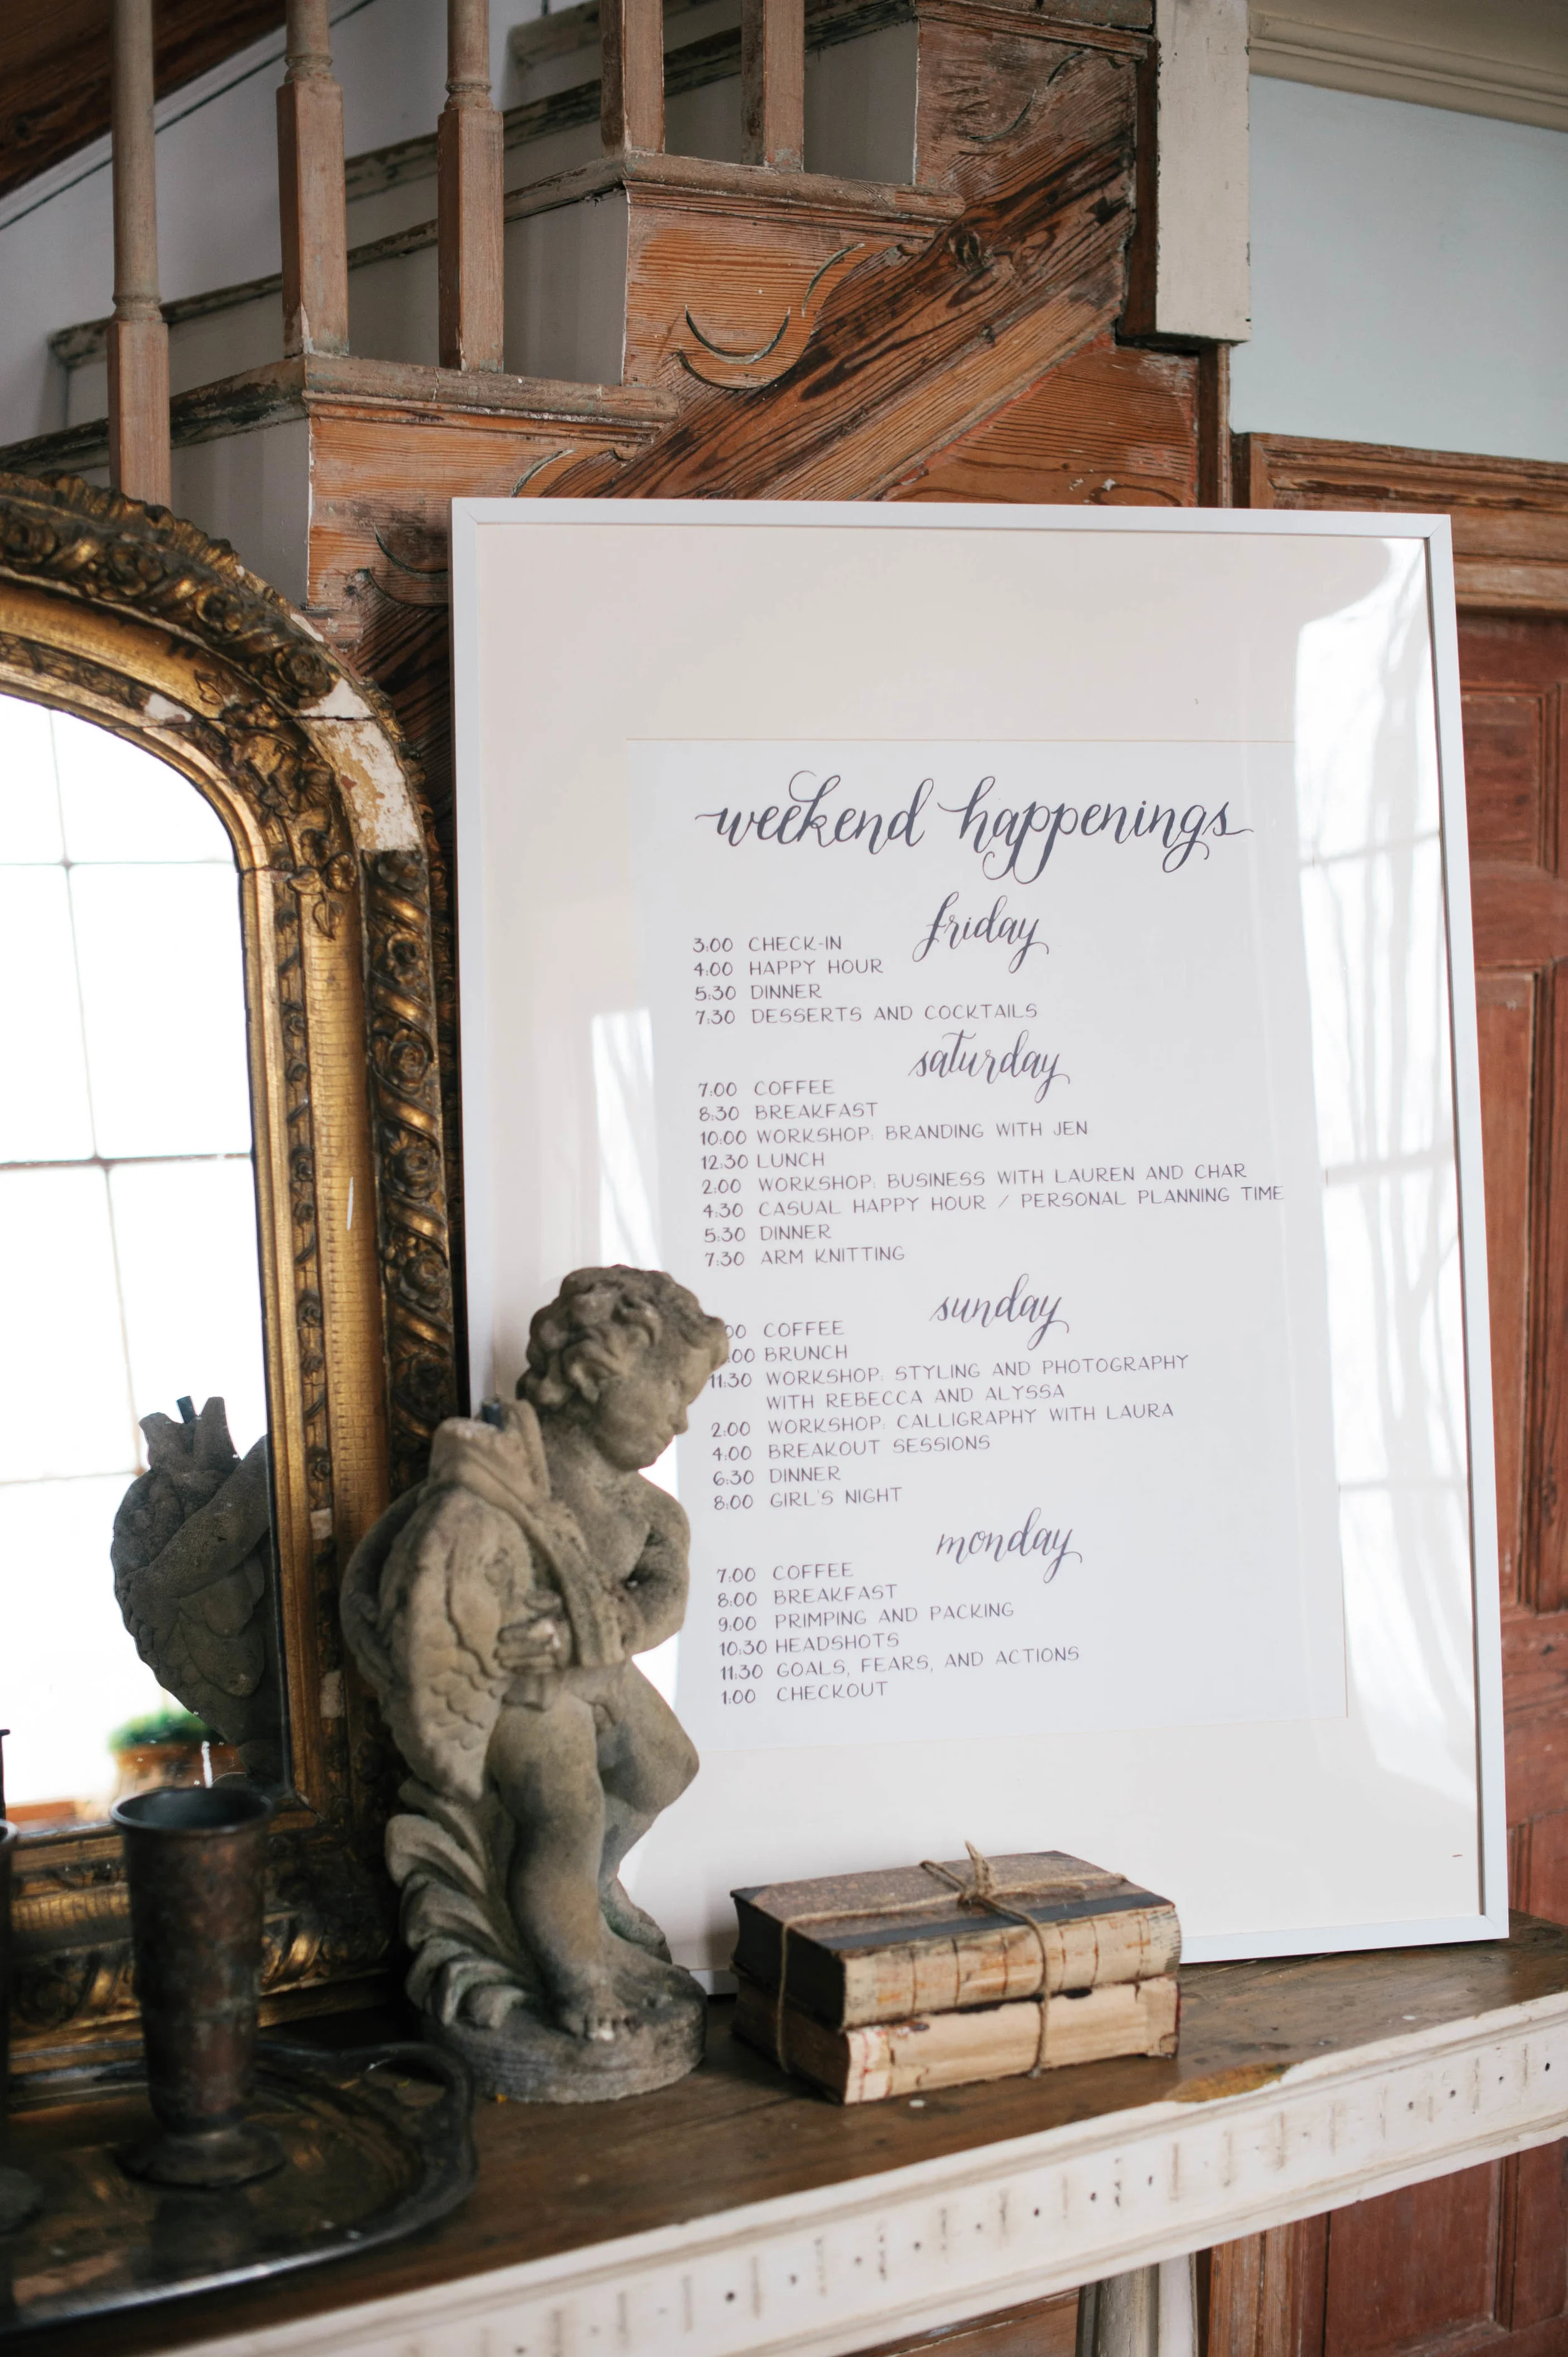 weekend happenings
friday
3:00 CHECK-IN
4:00 HAPPY HOUR
5:30 DINNER
7:30 DESSERTS AND COCKTAILS
saturday
7:00 COFFEE
8:30 BREAKFAST
10:00 WORKSHOP: BRANDING WITH JEN
12:30 LUNCH
2:00 WORKSHOP: BUSINESS WITH LAUREN AND CHAR
4:30 CASUAL HAPPY HOUR / PERSONAL PLANNING TIME
5:30 DINNER
7:30 ARM KNITTING
sunday
COFFEE
BRUNCH
11:30 WORKSHOP: STYLING AND PHOTOGRAPHY
WITH REBECCA AND ALYSSA
2:00 WORKSHOP: CALLIGRAPHY WITH LAURA
4:00 BREAKOUT SESSIONS
6:30 DINNER
8:00 GIRL'S NIGHT
monday
7:00 COFFEE
8:00 BREAKFAST
9:00 PRIMPING AND PACKING
10:30 HEADSHOTS
11:30 GOALS, FEARS, AND ACTIONS
1:00 CHECKOUT